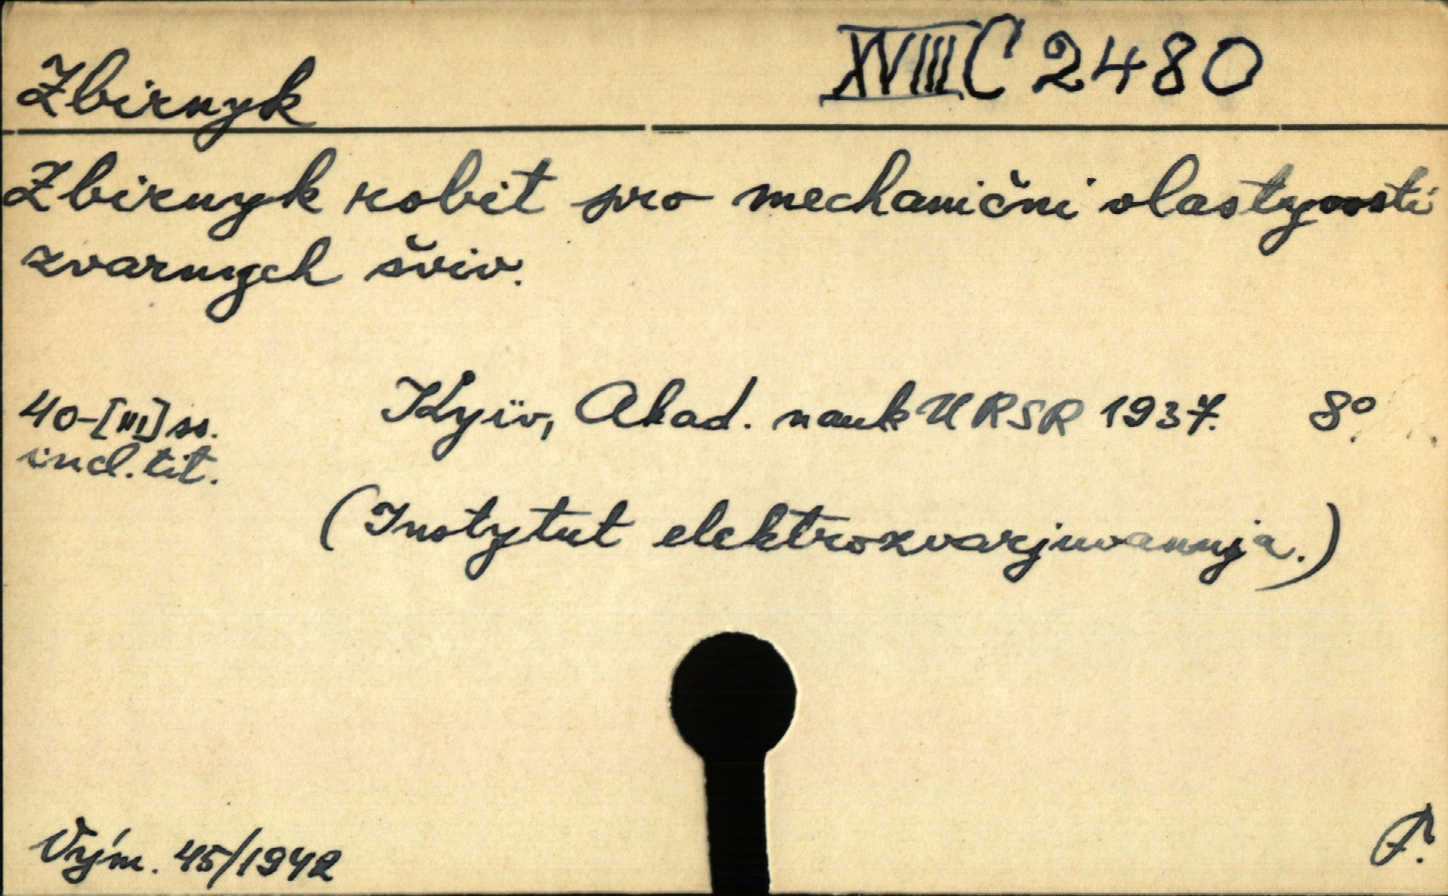 Zbirnyk
XVIII C 2480
Zbirnyk robit pro mechanični vlastyvosti
zvarnych šviv.
40-[III] ss.
incl. tit.
Kyïv, Akad. nauk URSR 1937. 8°.
(Instytut elektrozvarjuvannja.)
Vým. 45/1942
P.